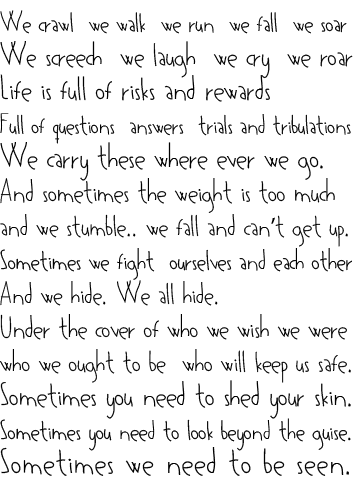 We crawl we walk we run we fall we soar
We screech we laugh we cry we roar
Life is full of risks and rewards
Full of questions answers trials and tribulations
We carry these where ever we go.
And sometimes the weight is too much
and we stumble.. we fall and can't get up.
Sometimes we fight ourselves and each other
And we hide. We all hide.
Under the cover of who we wish we were
who we ought to be who will keep us safe.
Sometimes you need to shed your skin.
Sometimes you need to look beyond the guise.
Sometimes we need to be seen.